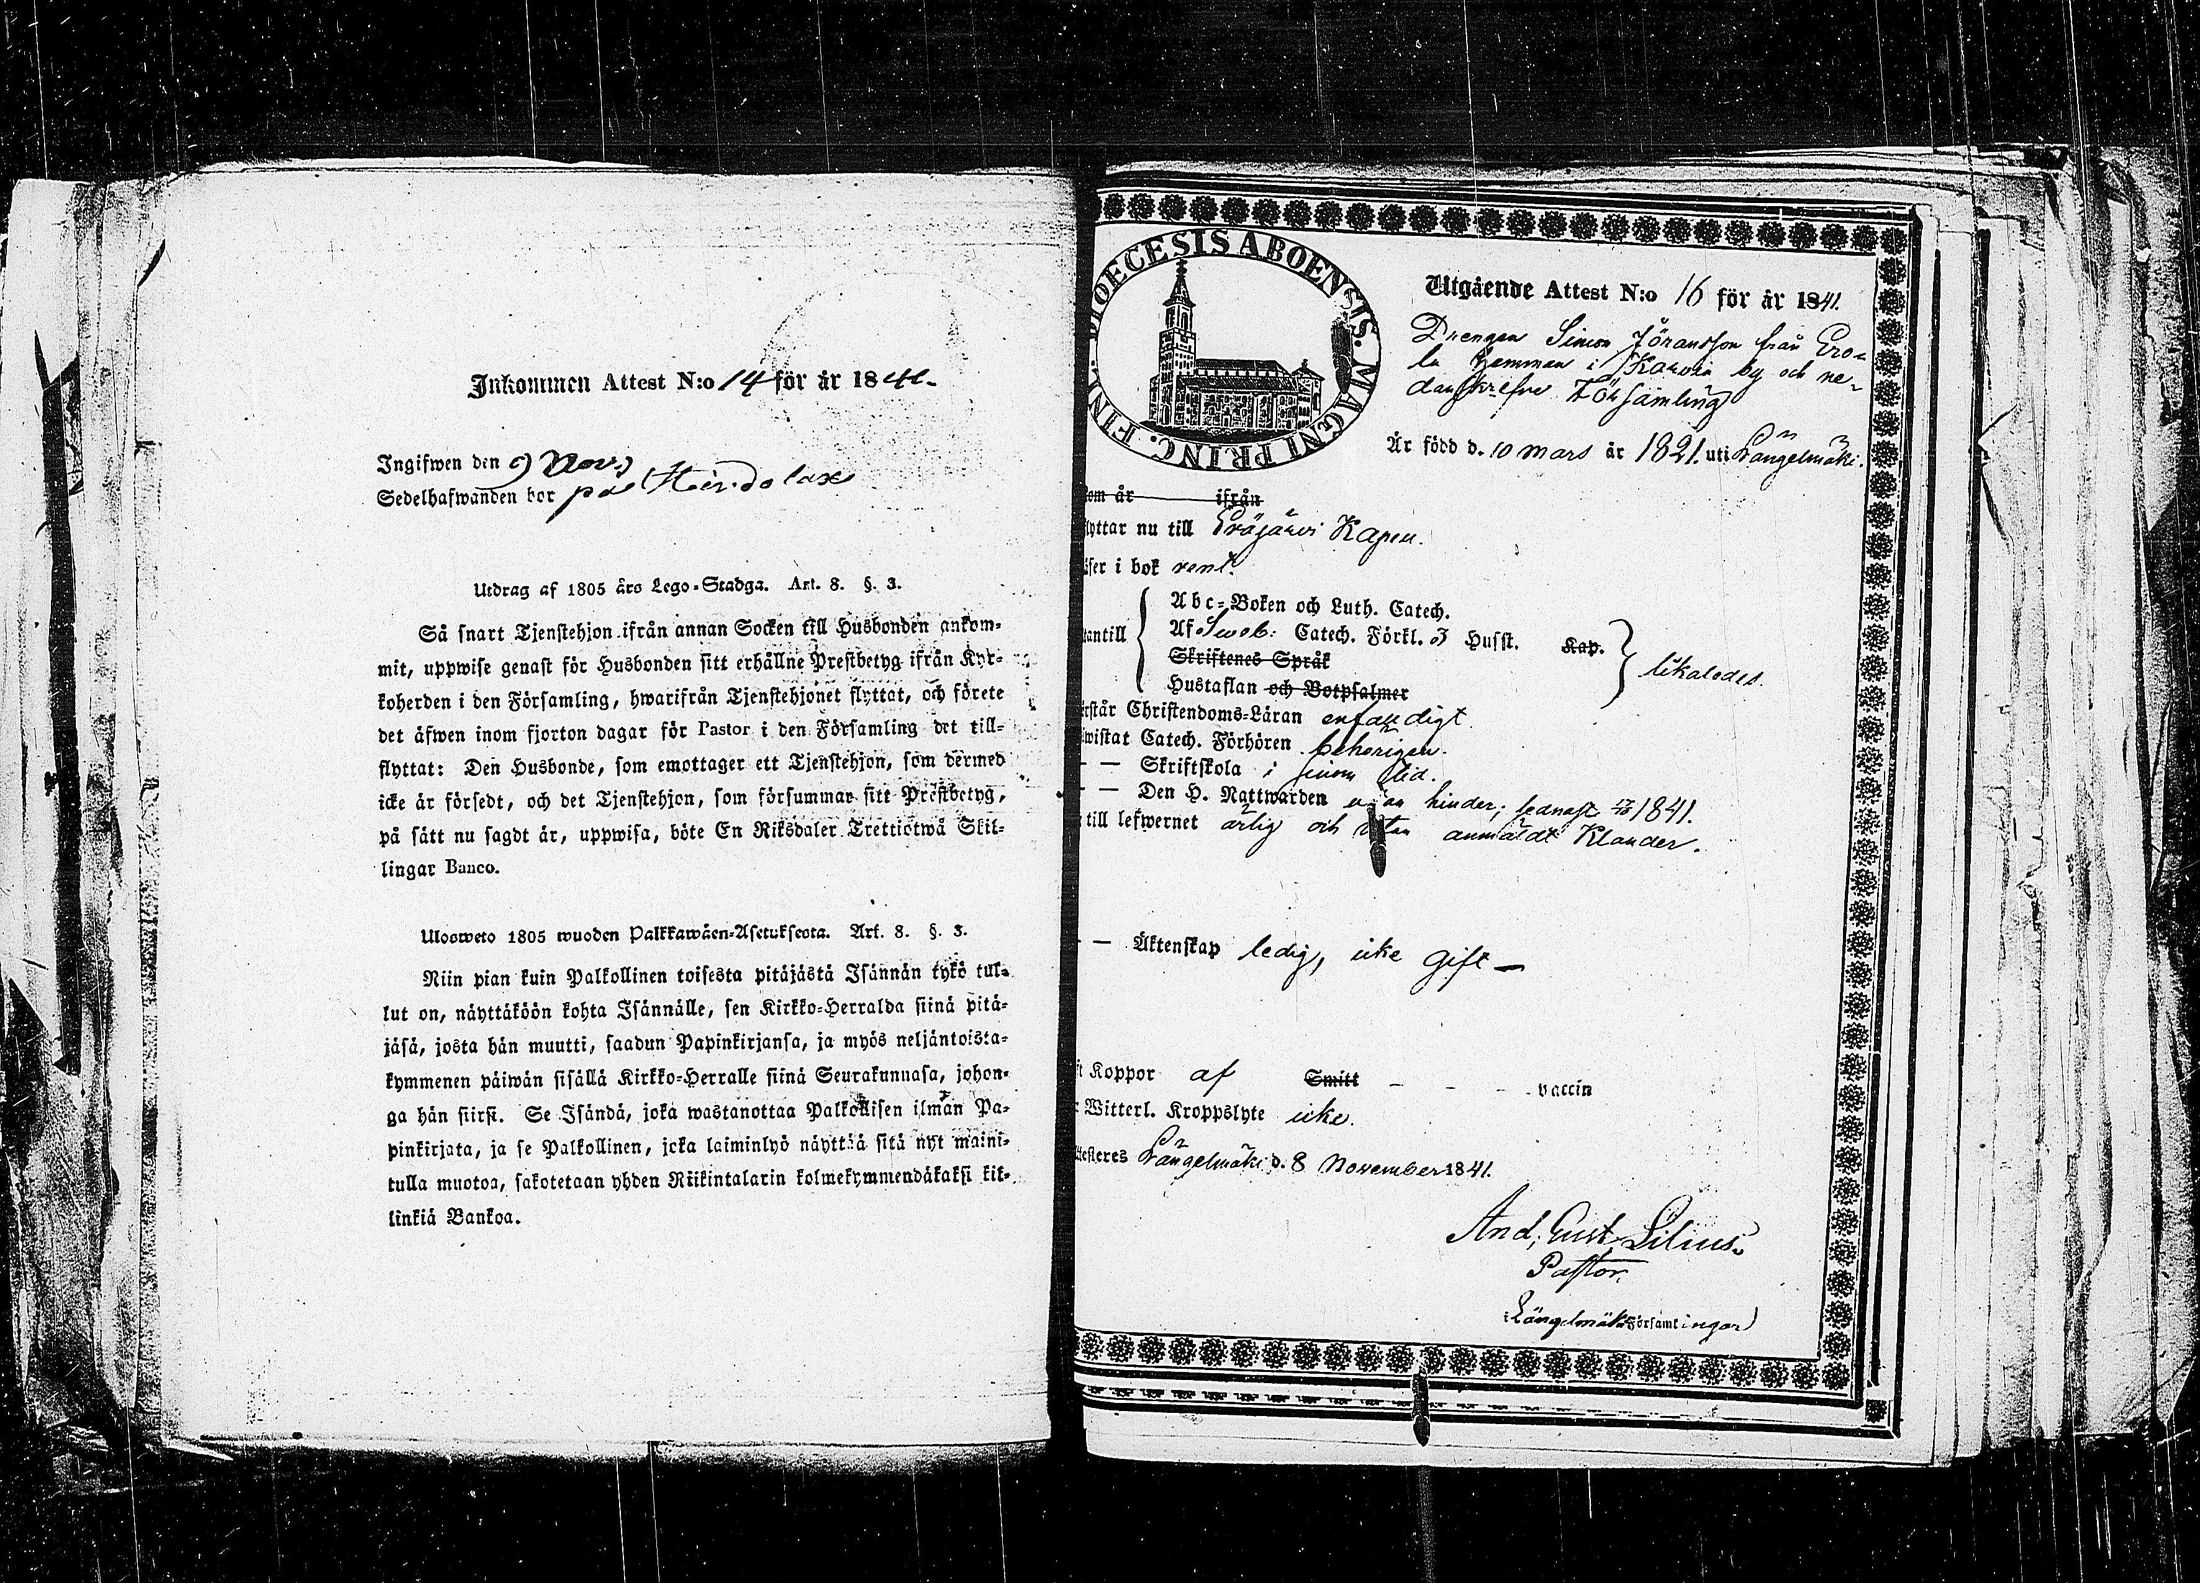 Inkommen Attest N:o 14 för år 1841.
Ingifwen den 9 Nov.
Sedelhafwanden bor på Heindolax
Utdrag af 1805 års Lego-Stadga. Art. 8. §. 3.
Så snart Tjenstehjon ifrån annan Socken till Husbonden ankom-
mit, uppwise genast för Husbonden sitt erhållne Prestbetyg ifrån Kyr-
koherden i den Församling, hwarifrån Tjenstehjonet flyttat, och förete
det äfwen inom fjorton dagar för Pastor i den Församling det till-
flyttat: Den Husbonde, som emottager ett Tjenstehjon, som dermed
icke är försedt, och det Tjenstehjon, som försummar sitt Prestbetyg,
på sätt nu sagdt är, uppwisa, böte En Riksdaler Trettiotwå Skil-
lingar Banco.
Ulosweto 1805 wuoden Palkkawäen-Asetuksesta. Art. 8. §. 3.
Niin pian kuin Palkollinen toisesta pitäjästä Isännän tykö tul-
lut on, näyttäköön kohta Isännälle, sen Kirkko-Herralda siinä pitä-
jäsä, josta hän muutti, saadun Papinkirjansa, ja myös neljäntoista-
kymmenen päiwän sisällä Kirkko-Herralle siinä Seurakunnasa, johon-
ga hän siirsi. Se Isändä, joka wastanottaa Palkollisen ilman Pa-
pinkirjata, ja se Palkollinen, joka laiminlyö näyttää sitä nyt maini-
tulla muotoa, sakotetaan yhden Riikintalarin kolmekymmendäkaksi kil-
linkiä Bankoa.
DIOECESIS ABOENSIS. MAGNI PRINC. FINL.
Utgående Attest N:o 16 för år 1841.
Drengen Simon Jöransson från Ero-
la hemman i Karvia by och ne-
danskrefne Församling
Är född d. 10 Mars år 1821. uti Längelmäki.
kom år ifrån
flyttar nu till Eräjärvi Kapell.
läser i bok rent.
Abc-Boken och Luth. Catech.
utantill Af Sweb: Catech. Förkl. 3 Husst. Kap.
Skriftenes Språk likaledes.
Hustaflan och Botpsalmer
förstår Christendoms-Läran enfaldigt
bewistat Catech. Förhören behörigen.
— — Skriftskola i sinom tid.
— — Den H. Nattwarden utan hinder; sednast 1841.
till lefwernet ärlig och utan anmäldt Klander.
— — Äktenskap ledig, icke gift —
Koppor af Smitt - - - vaccin
Witterl. Kroppslyte icke.
Attesteres Längelmäki d. 8 November 1841.
And. Gust. Lilius.
Pastor.
i Längelmäki Församlingar